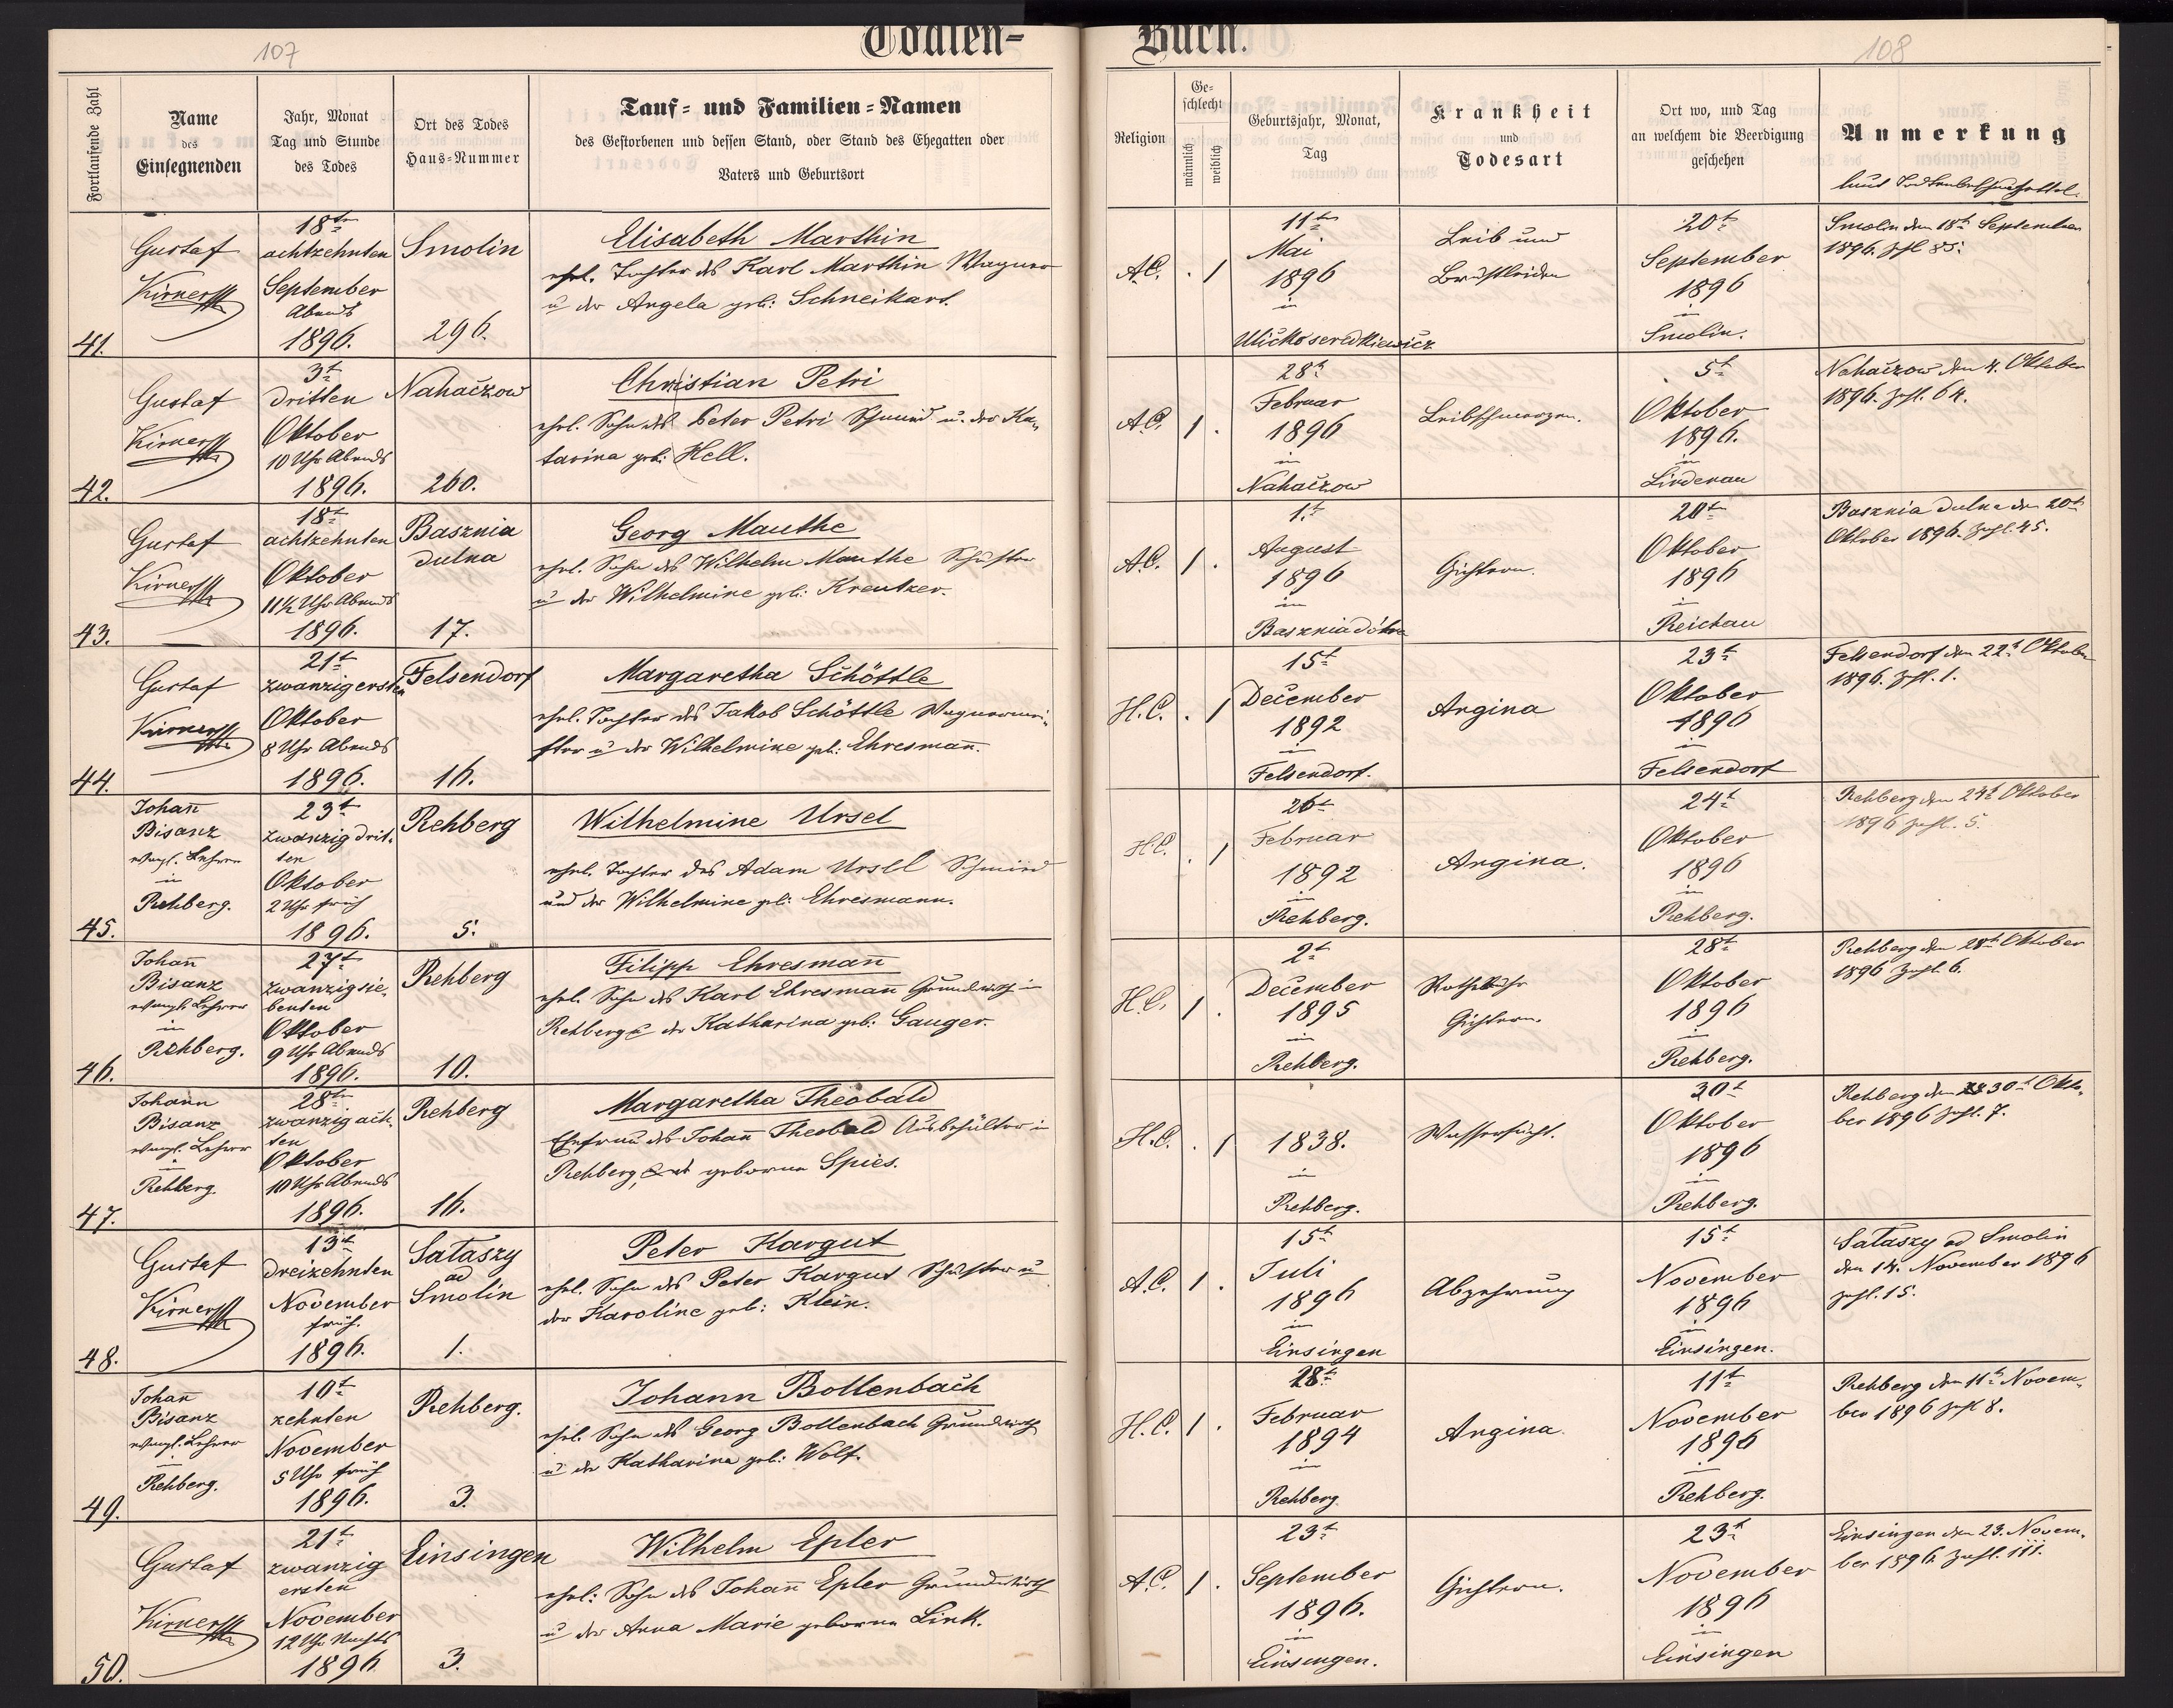 107
Todten-
Buch.
108
Fortlaufende Zahl
Name
des
Einsegnenden
Jahr, Monat
Tag und Stunde
des Todes
Ort des Todes
Haus-Nummer
Tauf- und Familien-Namen
des Gestorbenen und dessen Stand, oder Stand des Ehegatten oder
Vaters und Geburtsort
Religion
Ge-
schlecht
männlich
weiblich
Geburtsjahr, Monat,
Tag
Krankheit
und
Todesart
Ort wo, und Tag
an welchem die Beerdigung
geschehen
Anmerkung
laut
41.
Gustaf
Kirner
18t
achtzehnten
September
Abends
1896.
Smolin
296.
Elisabeth Marthin
ehel. Tochter des Karl Marthin Wagner
u der Angela geb: Schneikart.
A.C.
. 1
11t
Mai
1896
in
Leib und
Brustleiden
20t
September
1896
in
Smolin.
Smolin den 18t September
1896. Zhl 85.
42.
Gustaf
Kirner
3t
dritten
Oktober
10 Uhr Abends
1896.
Nahaczow
260.
Christian Petri
ehel. Sohn des Peter Petri Schmied u. der Ka-
tarina geb: Hell.
A.C.
1 .
28t
Februar
1896
in
Nahaczow
Leibschmerzen.
5t
Oktober
1896.
in
Lindenau
Nahaczow den 4. Oktober
1896. Zhl. 64.
43.
Gustaf
Kirner
18t
achtzehnten
Oktober
11½ Uhr Abends
1896.
Basznia
dulna
17.
Georg Mauthe
ehel. Sohn des Wilhelm Mauthe Schuster
u der Wilhelmine geb: Kreutzer.
A.C.
1 .
1.t
August
1896
in
Basznia
Gichtern.
20t
Oktober
1896
in
Reichau
Basznia dulna den 20t
Oktober 1896. Zhl. 45.
44.
Gustaf
Kirner
21t
zwanzigersten
Oktober
8 Uhr Abends
1896.
Felsendorf
16.
Margaretha Schöttle
ehel. Tochter des Jakob Schöttle Wagnermei-
ster u der Wilhelmine geb: Ehresmañ.
H.C.
. 1
15t
December
1892
in
Felsendorf.
Angina
23t
Oktober
1896
in
Felsendorf
Felsendorf den 22t Oktober
1896. Zhl. 1.
45.
Johañ
Bisanz
evangl. Lehrer
in
Rehberg.
23t
zwanzig drit-
ten
Oktober
2 Uhr früh
1896.
Rehberg
5.
Wilhelmine Ursel
ehel. Tochter des Adam Ursel Schmied
und der Wilhelmine geb: Ehresmann.
H.C.
. 1
26t
Februar
1892
in
Rehberg.
Angina.
24t
Oktober
1896
in
Rehberg.
Rehberg den 24t Oktober
1896 Zahl. 5.
46.
Johañ
Bisanz
evangl. Lehrer
in
Rehberg.
27t
zwanzigsie-
benten
Oktober
9 Uhr Abends
1896.
Rehberg
10.
Filipp Ehresmañ
ehel. Sohn des Karl Ehresmañ Grundwirth in
Rehberg & der Katharina geb: Gauger.
H.C.
1 .
2t
December
1895
in
Rehberg.
Gichtern.
28t
Oktober
1896
in
Rehberg.
Rehberg den 28t Oktober
1896 Zahl. 6.
47.
Johann
Bisanz
evangl. Lehrer
in
Rehberg.
28t
zwanzig ach-
ten
Oktober
10 Uhr Abends
1896.
Rehberg
16.
Margaretha Theobald
Ehefrau des Johañ Theobald Ausbehälter in
Rehberg, geborne Spies.
H.C.
. 1
1838.
in
Rehberg.
Wassersucht.
30t
Oktober
1896
in
Rehberg.
Rehberg den 30t Okto-
ber 1896 Zahl. 7.
48.
Gustaf
Kirner
13t
dreizehnten
November
früh.
1896.
Sałaszy
ad
Smolin
1.
Peter Kargut
ehel. Sohn des Peter Kargut Schuster u
der Karoline geb: Klein.
A.C.
1 .
15t
Juli
1896
in
Einsingen
Abzehrung
15t
November
1896
in
Einsingen.
Sałaszy ad Smolin
den 14. November 1896
Zahl. 15.
49.
Johañ
Bisanz
evangl. Lehrer
in
Rehberg.
10t
zehnten
November
5 Uhr früh
1896.
Rehberg.
3.
Johann Bollenbach
ehel. Sohn des Georg Bollenbach Grundwirth
u der Katharina geb: Wolf.
H.C.
1 .
28t
Februar
1894
in
Rehberg.
Angina.
11t
November
1896
in
Rehberg.
Rehberg den 11t Novem-
ber 1896 Zahl 8.
50.
Gustaf
Kirner
21t
zwanzig
ersten
November
12 Uhr Nachts
1896
Einsingen
3.
Wilhelm Epler
ehel: Sohn des Johañ Epler Grundwirth
u der Anna Marie geborne Link.
A.C.
1 .
23t
September
1896.
in
Einsingen.
Gichtern.
23t
November
1896
in
Einsingen
Einsingen den 23. Novem-
ber 1896 Zahl. 111.